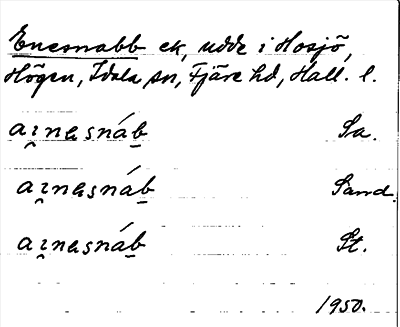 Enesnabb ek, udde i Hosjö,
Högen, Idala sn, Fjäre hd, Hall. l.
aı̯nesnáb̲ Sa.
aı̯nesnáb̲ Sand.
aı̯nesnáb̲ St.
1950.